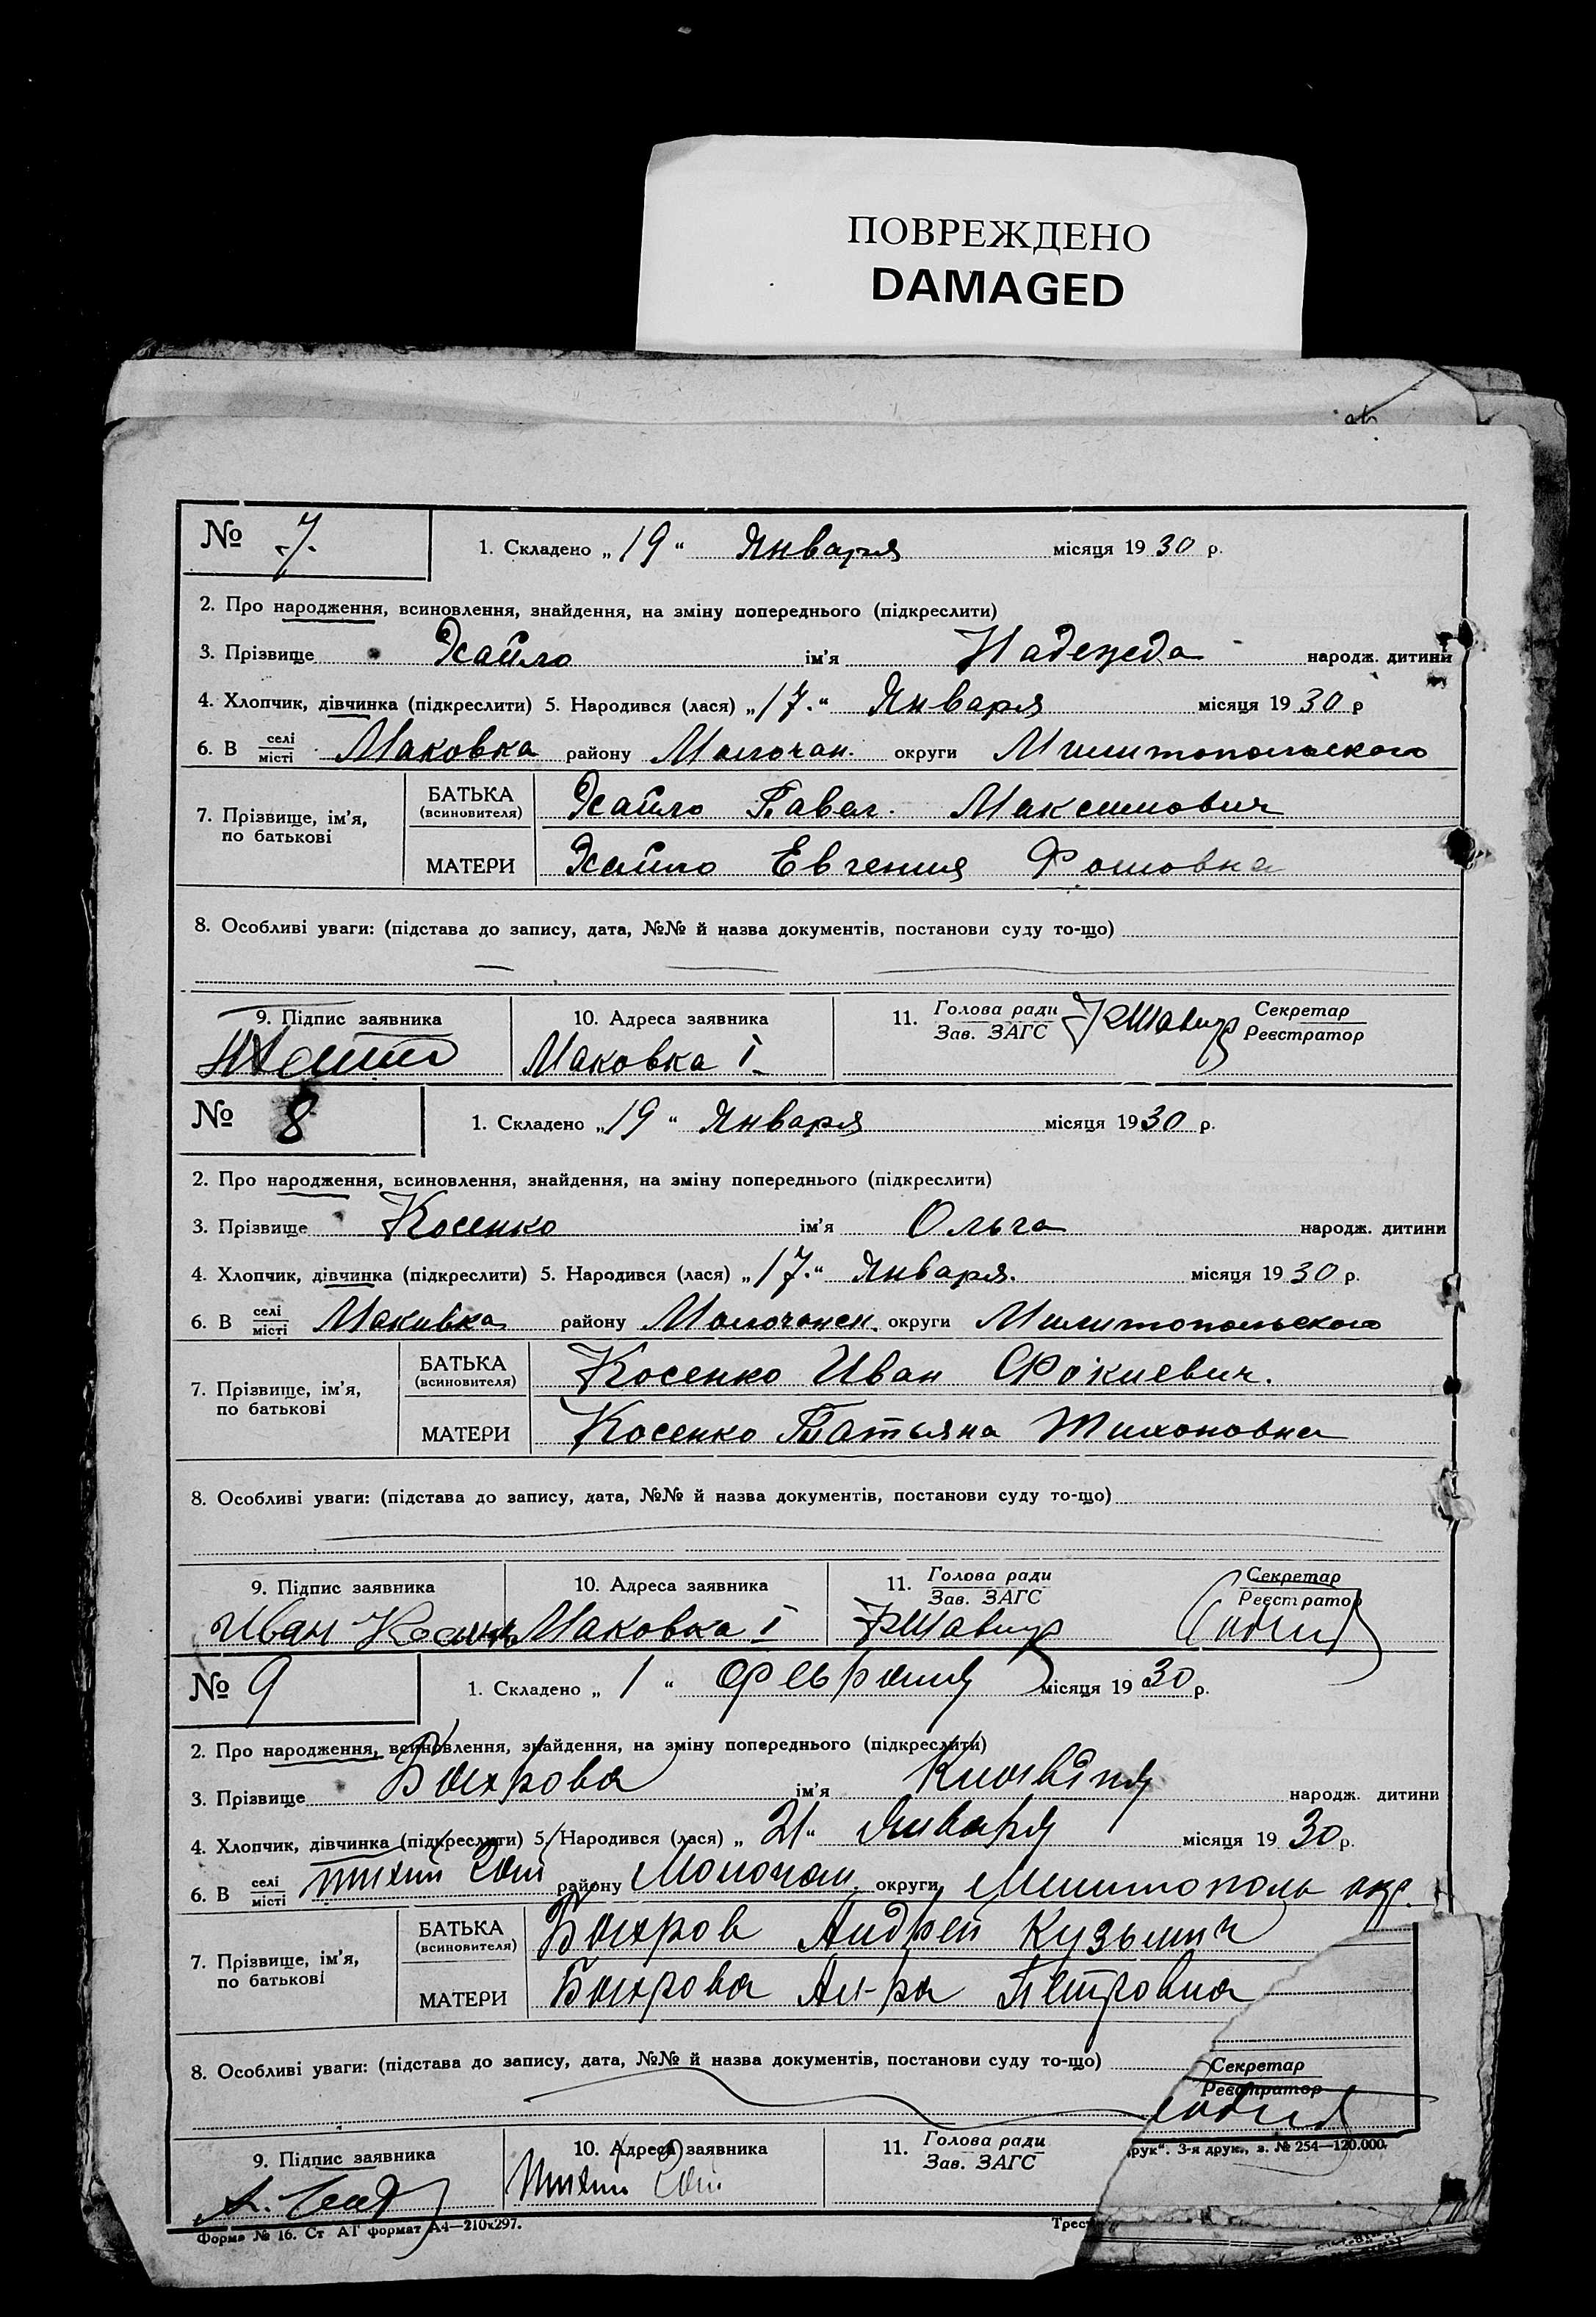 ПОВРЕЖДЕНО
DAMAGED
№ 7. 1. Складено „19“ Января місяця 1930 р.
2. Про народження, всиновлення, знайдення, на зміну попереднього (підкреслити)
3. Прізвище Жайло ім'я Надежда народж. дитини
4. Хлопчик, дівчинка (підкреслити) 5. Народився (лася) „17.“ Января місяця 1930 р
6. В селі місті Маковка району Молочан. округи Милитопольского
7. Прізвище, ім'я, по батькові БАТЬКА (всиновителя) Жайло Павел. Максимович
МАТЕРИ Жайло Евгения Фомовна
8. Особливі уваги: (підстава до запису, дата, №№ й назва документів, постанови суду то-що)
9. Підпис заявника 10. Адреса заявника 11. Голова ради Зав. ЗАГС Секретар Реєстратор
Маковка I
№ 8 1. Складено „19“ Января місяця 1930 р.
2. Про народження, всиновлення, знайдення, на зміну попереднього (підкреслити)
3. Прізвище Косенко ім'я Ольга народж. дитини
4. Хлопчик, дівчинка (підкреслити) 5. Народився (лася) „17.“ Января. місяця 1930 р.
6. В селі місті Маковка району Молочанск. округи Милитопольского
7. Прізвище, ім'я, по батькові БАТЬКА (всиновителя) Косенко Иван Фокиевич.
МАТЕРИ Косенко Татьяна Тихоновна
8. Особливі уваги: (підстава до запису, дата, №№ й назва документів, постанови суду то-що)
9. Підпис заявника 10. Адреса заявника 11. Голова ради Зав. ЗАГС Секретар Реєстратор
Иван Косенко Маковка I
№ 9 1. Складено „1“ Февраля місяця 1930 р.
2. Про народження, всиновлення, знайдення, на зміну попереднього (підкреслити)
3. Прізвище Бохрова ім'я Клавдия народж. дитини
4. Хлопчик, дівчинка (підкреслити) 5. Народився (лася) „21“ Января місяця 1930 р.
6. В селі місті Тихий району Молочан. округи Мелитополь окр.
7. Прізвище, ім'я, по батькові БАТЬКА (всиновителя) Бохров Андрей Кузьмич
МАТЕРИ Бохрова Ал-ра Петровна
8. Особливі уваги: (підстава до запису, дата, №№ й назва документів, постанови суду то-що)
Секретар Реєстратор
9. Підпис заявника 10. Адреса заявника 11. Голова ради Зав. ЗАГС
Тихий
рук“. 3-я друк., з. № 254—120.000.
Форма № 16. Ст АТ формат А4—210х297. Трест